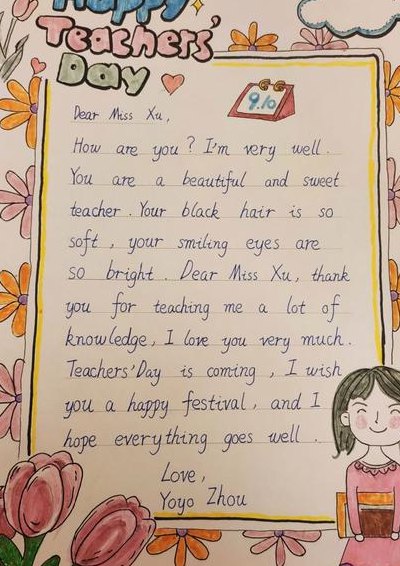 Happy
Teachers'
Day
9.10
Dear Miss Xu,
How are you? I'm very well.
You are a beautiful and sweet
teacher. Your black hair is so
soft, your smiling eyes are
so bright. Dear Miss Xu, thank
you for teaching me a lot of
knowledge, I love you very much.
Teachers'Day is coming, I wish
you a happy festival, and I
hope everything goes well.
Love,
Yoyo Zhou